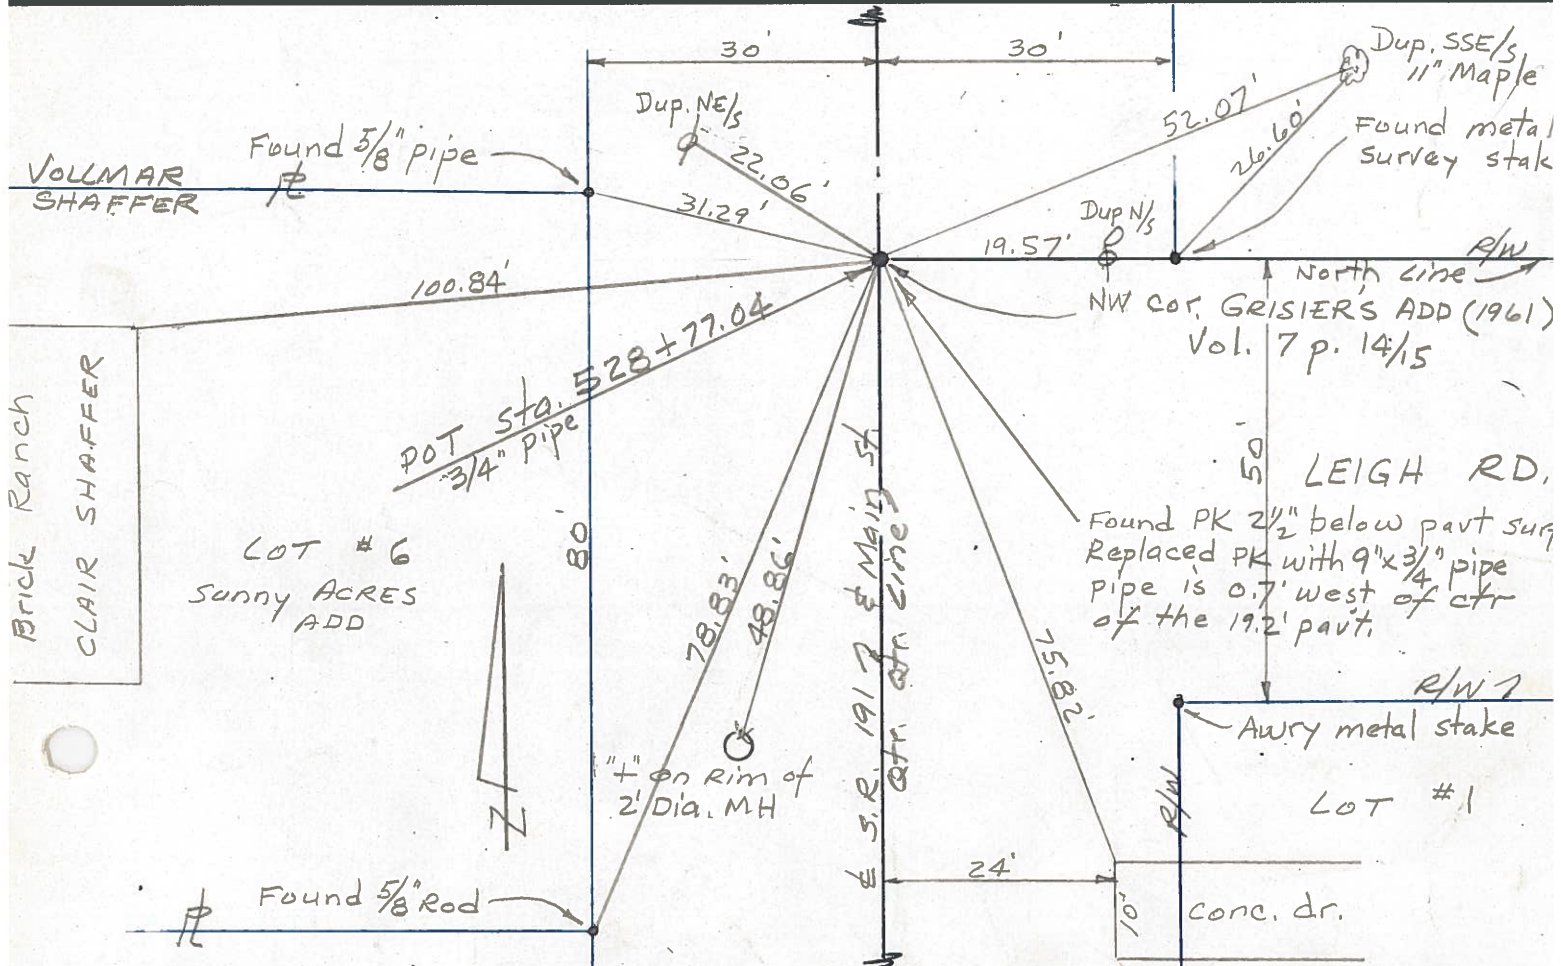 30'
30'
Dup. SSE/s
11" Maple
52.07'
26.60'
Found metal
Survey stak
Dup. NE/s
22.06'
Found 5/8" pipe
VOLLMAR
SHAFFER
31.29'
Dup N/s
19.57'
R/W
North Line
100.84'
NW cor. GRISIER'S ADD (1961)
Vol. 7 p. 14/15
POT Sta. 528+77.04
3/4" pipe
Brick Ranch
CLAIR SHAFFER
50'
LEIGH RD.
Found PK 2½" below pavt surf
Replaced PK with 9"x3/4" pipe
pipe is 0.7' west of ctr
of the 19.2' pavt.
LOT #6
Sunny ACRES
ADD
80'
78.83'
48.86'
℄ S.R. 191 & Main St.
Qtr. Qtr. Line
75.82'
R/W
Awry metal stake
"+" on Rim of
2' Dia. MH
R/W
LOT #1
24'
10'
Conc. dr.
Found 5/8" Rod
N